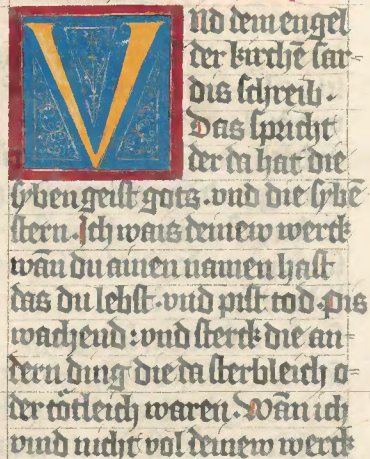 Vnd dem engel
der kirchē sar-
dis schreib.
Das spricht
der da hat die
sybengeist gots. vnd die sybē
stern. Ich wais deinew werck
wan du ainen namen hast
das du lebst. vnd pist tod. pis
wachend: vnd sterck die an-
dern ding die da sterbleich o-
der tötleich waren. Wan ich
vind nicht vol deinew werck